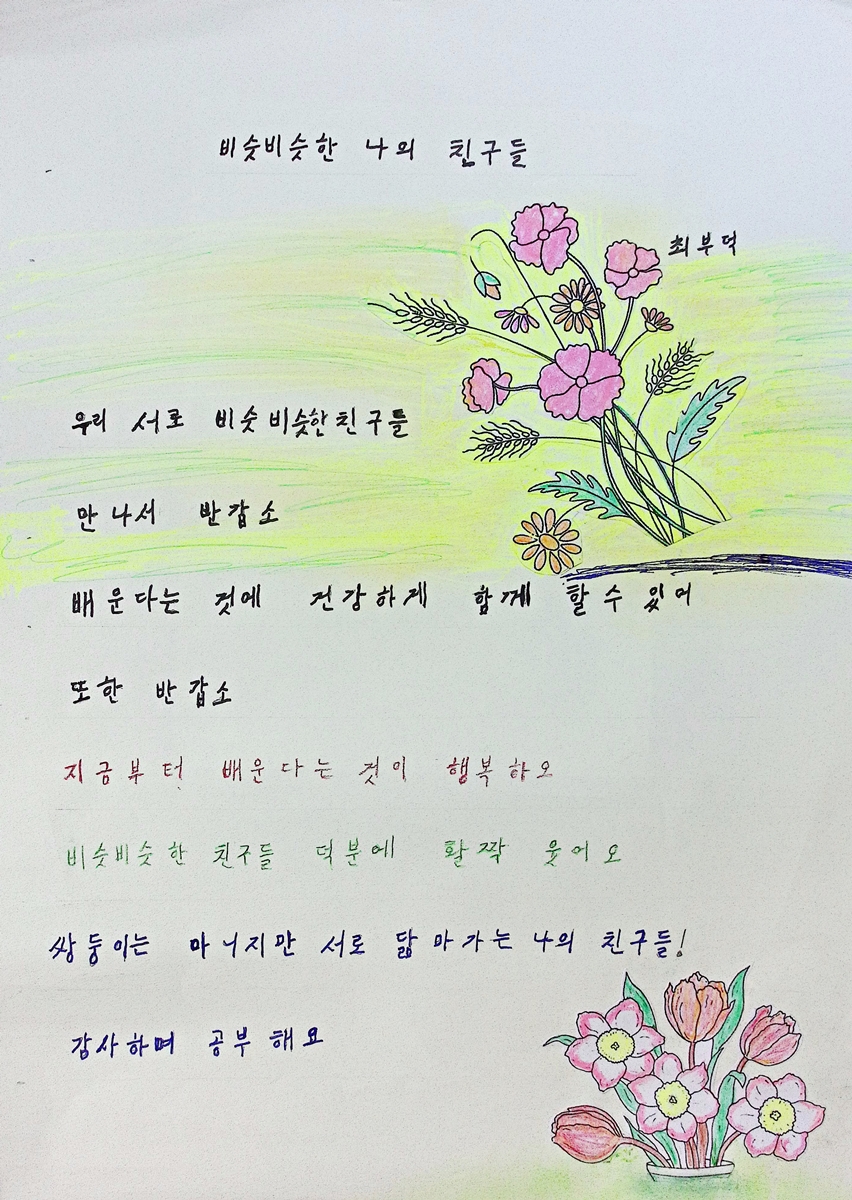 비슷비슷한 나의 친구들
최부덕
우리 서로 비슷비슷한 친구들
만나서 반갑소
배운다는 것에 건강하게 함께 할 수 있어
또한 반갑소
지금부터 배운다는 것이 행복하오
비슷비슷한 친구들 덕분에 활짝 웃어오
쌍둥이는 아니지만 서로 닮아가는 나의 친구들!
감사하며 공부해요